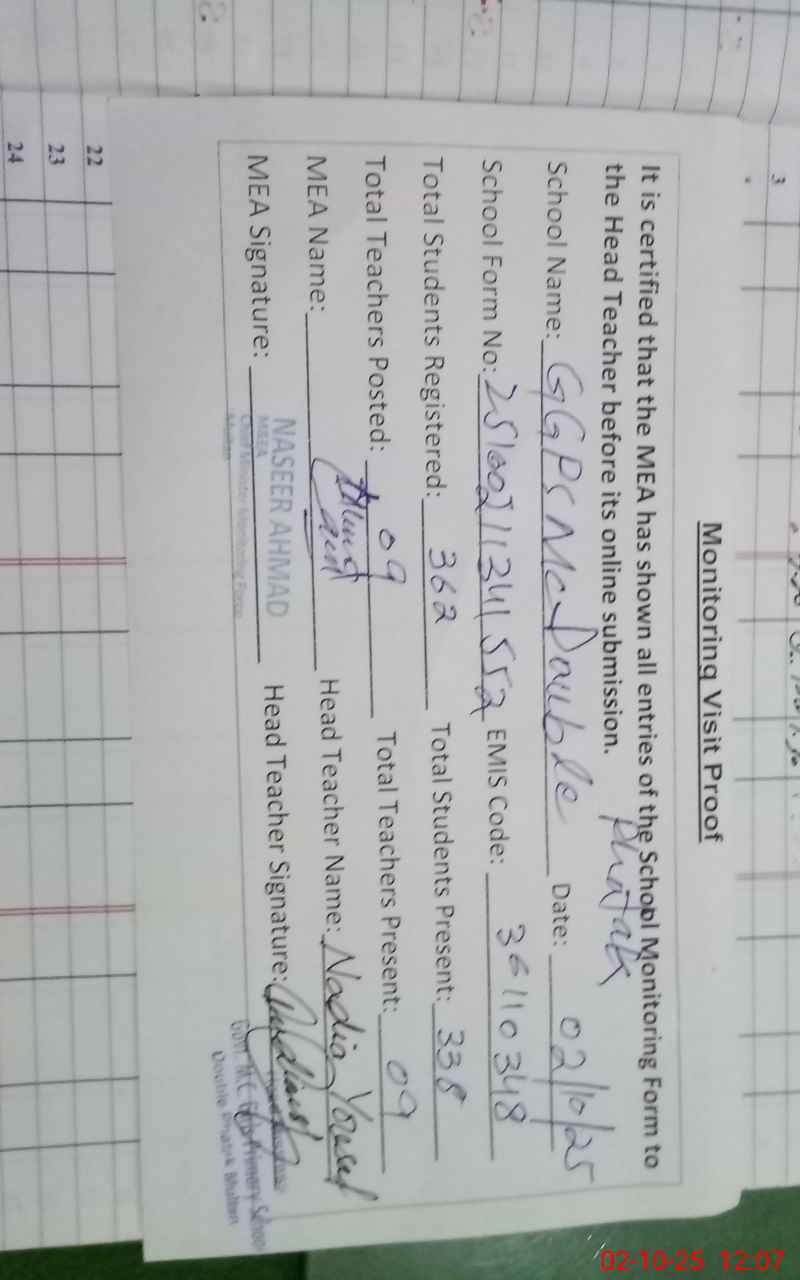 Monitoring Visit Proof
It is certified that the MEA has shown all entries of the School Monitoring Form to
the Head Teacher before its online submission.
Phatak
School Name: GGPS Mc Double Date: 02/10/25
School Form No: 251002112341552 EMIS Code: 36110348
Total Students Registered: 362 Total Students Present: 338
Total Teachers Posted: 09 Total Teachers Present: 09
MEA Name: Head Teacher Name: Nadia Yousaf
MEA Signature: Head Teacher Signature:
NASEER AHMAD
MEEA
Chief Minister Monitoring Force
Multan
Govt. M.C Primary School
Double Phatak Multan
3
22
23
24
02-10-25 12:07